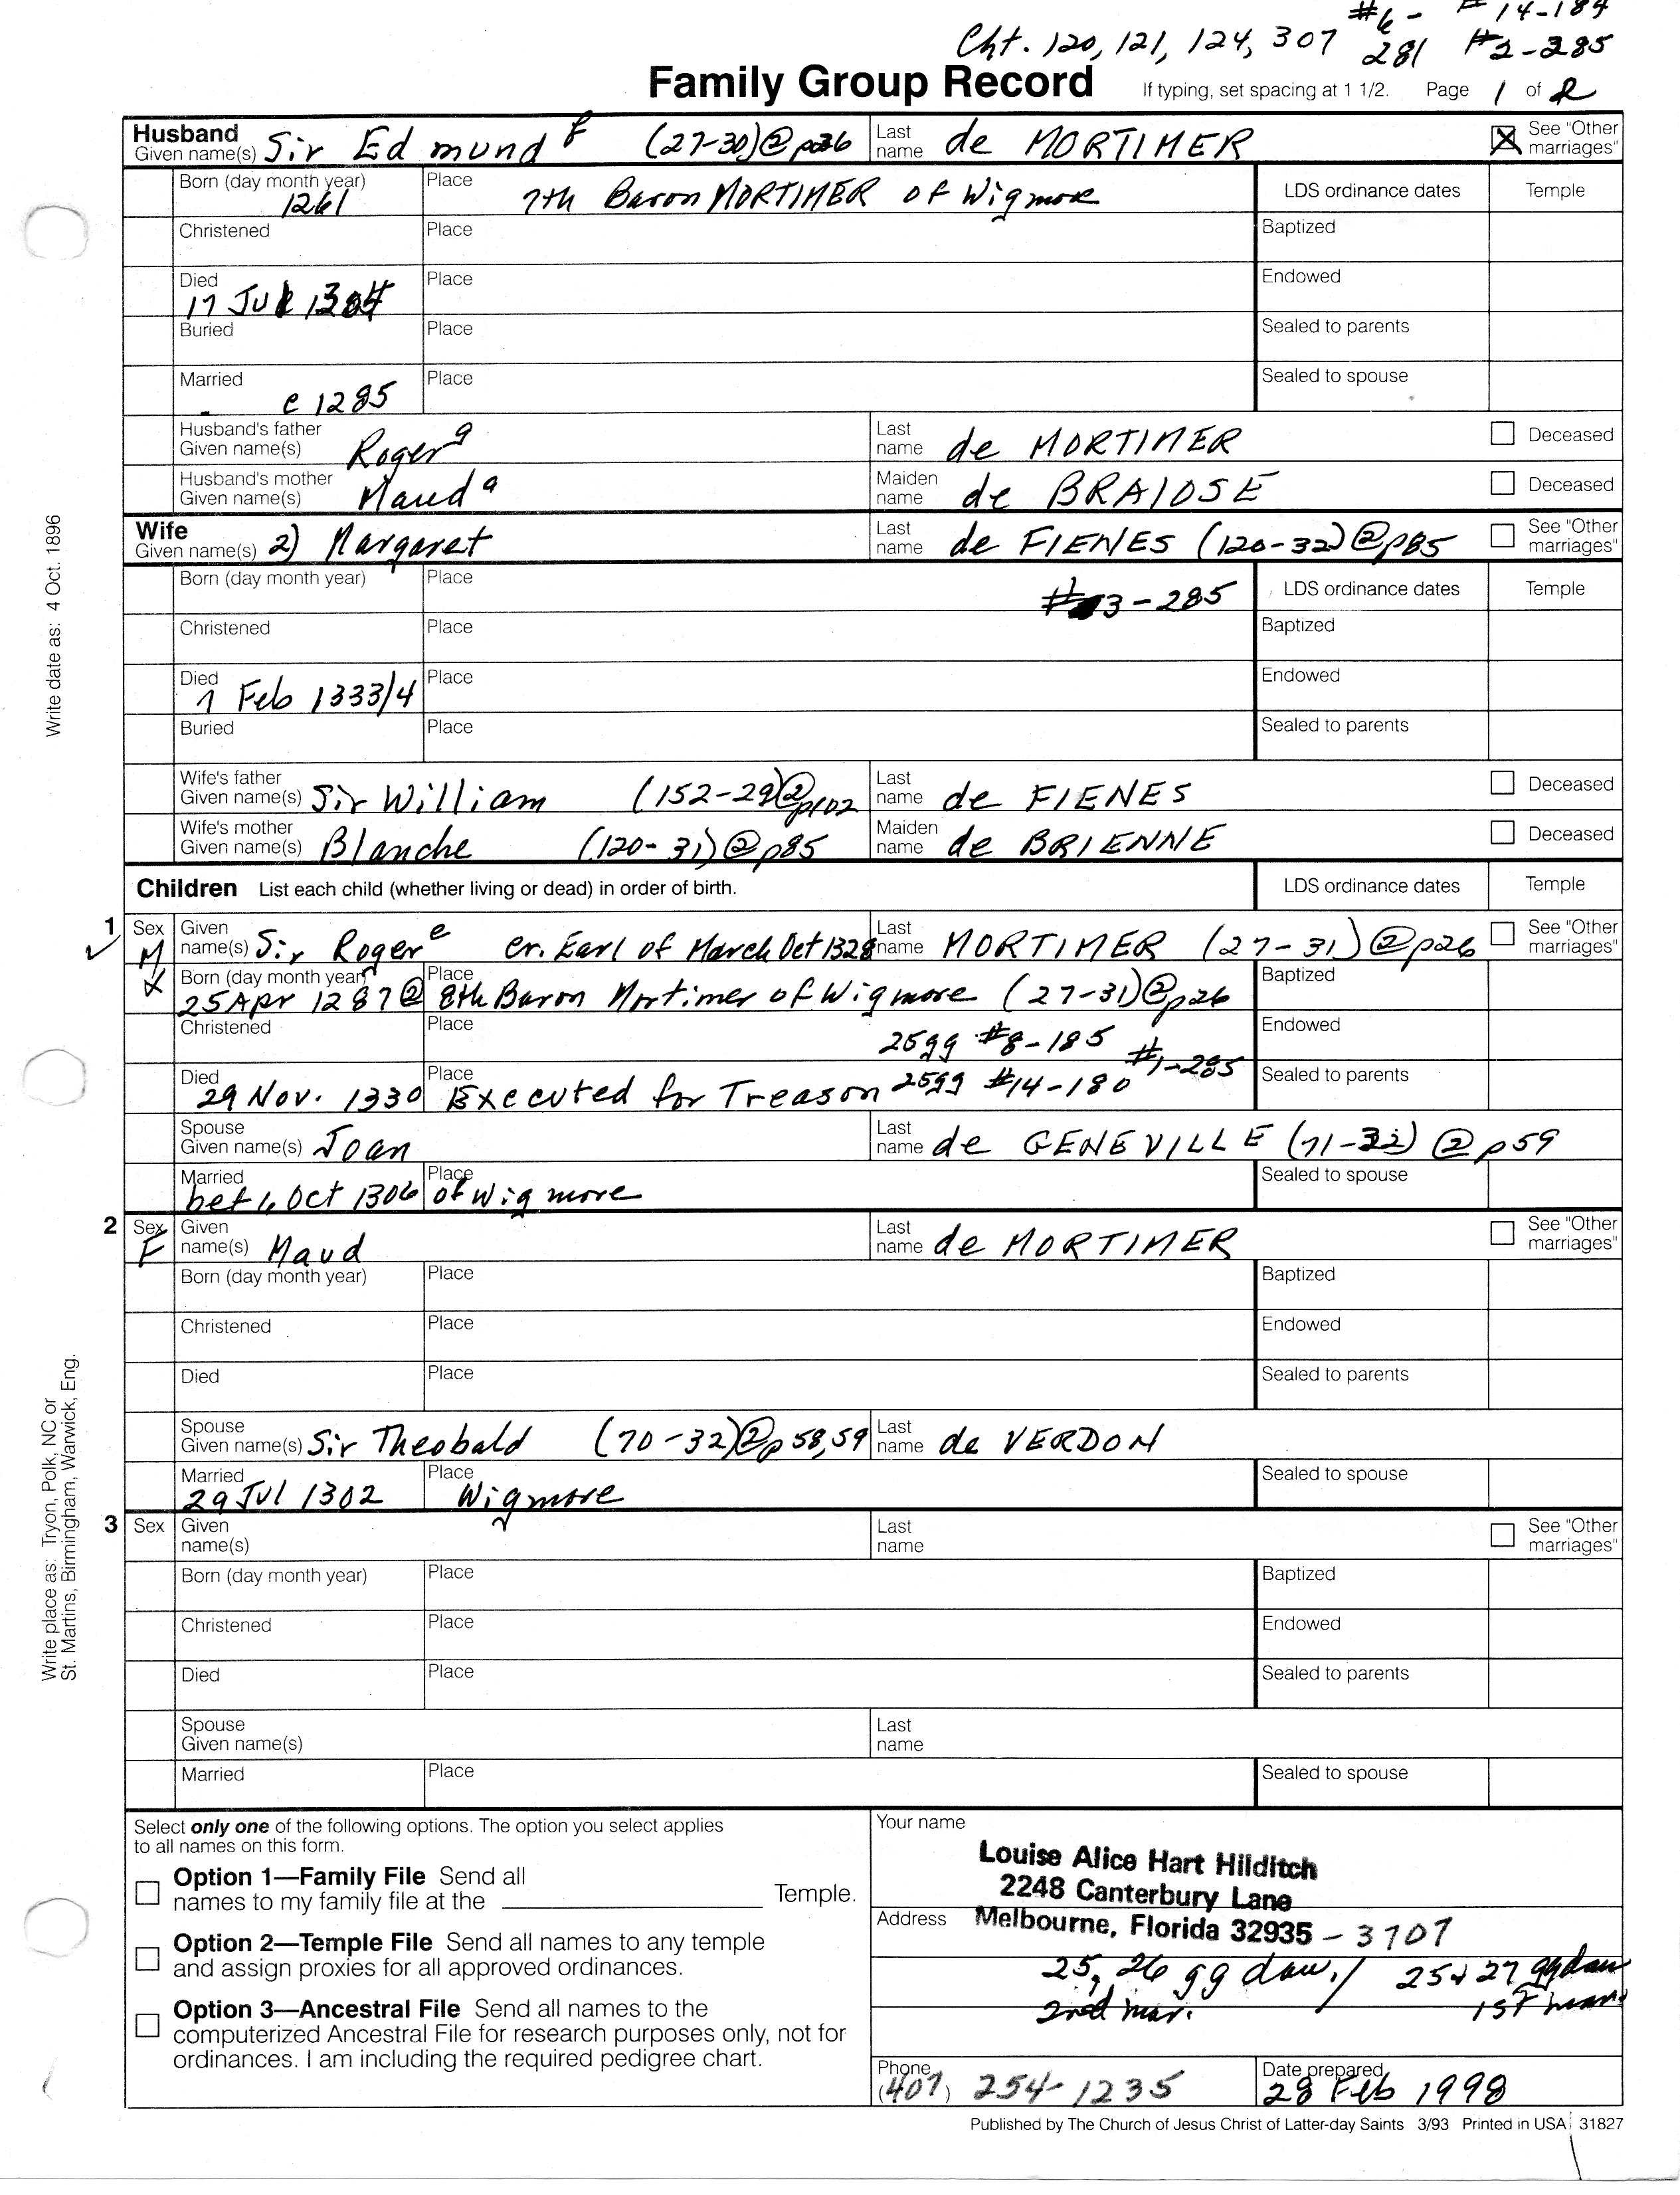 #6 - #14-184
Cht. 120, 121, 124, 307 281 #2-285
Family Group Record If typing, set spacing at 1 1/2. Page 1 of 2
Husband
Given name(s) Sir Edmund f (27-30)@p26 Last name de MORTIMER See "Other marriages"
Born (day month year) 1261 Place 7th Baron MORTIMER of Wigmore LDS ordinance dates Temple
Christened Place Baptized
Died 17 Jul 1304 Place Endowed
Buried Place Sealed to parents
Married c 1285 Place Sealed to spouse
Husband's father Given name(s) Roger g Last name de MORTIMER Deceased
Husband's mother Given name(s) Maud a Maiden name de BRAIOSE Deceased
Wife
Given name(s) 2) Margaret Last name de FIENES (120-32)@p85 See "Other marriages"
Born (day month year) Place #3-285 LDS ordinance dates Temple
Christened Place Baptized
Died 7 Feb 1333/4 Place Endowed
Buried Place Sealed to parents
Wife's father Given name(s) Sir William (152-29)@p102 Last name de FIENES Deceased
Wife's mother Given name(s) Blanche (120-31)@p85 Maiden name de BRIENNE Deceased
Children List each child (whether living or dead) in order of birth. LDS ordinance dates Temple
1 Sex M Given name(s) Sir Roger e cr. Earl of March Oct 1328 Last name MORTIMER (27-31)@p26 See "Other marriages"
X Born (day month year) 25 Apr 1287@ Place 8th Baron Mortimer of Wigmore (27-31)@p26 Baptized
Christened Place 25gg #8-185 #1-285 Endowed
Died 29 Nov. 1330 Place Executed for Treason 25gg #14-180 Sealed to parents
Spouse Given name(s) Joan Last name de GENEVILLE (71-32) @p59
Married bef 6 Oct 1306 Place of Wigmore Sealed to spouse
2 Sex F Given name(s) Maud Last name de MORTIMER See "Other marriages"
Born (day month year) Place Baptized
Christened Place Endowed
Died Place Sealed to parents
Spouse Given name(s) Sir Theobald (70-32)@p58,59 Last name de VERDON
Married 29 Jul 1302 Place Wigmore Sealed to spouse
3 Sex Given name(s) Last name See "Other marriages"
Born (day month year) Place Baptized
Christened Place Endowed
Died Place Sealed to parents
Spouse Given name(s) Last name
Married Place Sealed to spouse
Select only one of the following options. The option you select applies
to all names on this form.
Option 1—Family File Send all
names to my family file at the Temple.
Option 2—Temple File Send all names to any temple
and assign proxies for all approved ordinances.
Option 3—Ancestral File Send all names to the
computerized Ancestral File for research purposes only, not for
ordinances. I am including the required pedigree chart.
Your name
Louise Alice Hart Hilditch
2248 Canterbury Lane
Address Melbourne, Florida 32935 - 3707
25, 26 gg dau. / 25 & 27 gg dau
2nd mar. 1st mar.
Phone (407) 254-1235 Date prepared 28 Feb 1998
Published by The Church of Jesus Christ of Latter-day Saints 3/93 Printed in USA 31827
Write date as: 4 Oct. 1896
Write place as: Tryon, Polk, NC or
St. Martins, Birmingham, Warwick, Eng.